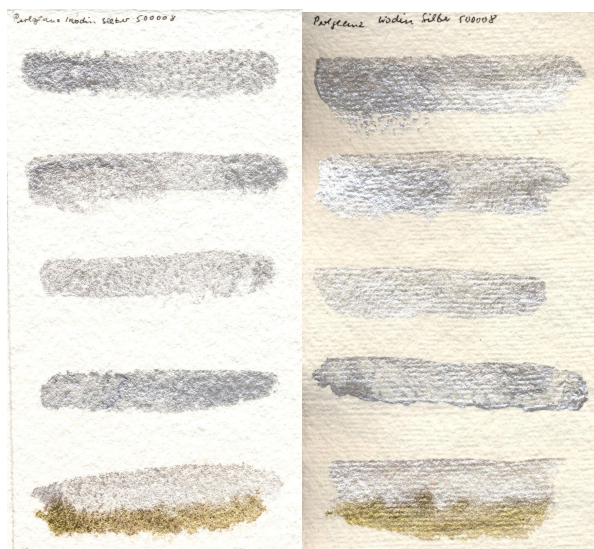 Perlglanz Iriodin Silber 500008
Perlglanz Iriodin Silber 500008